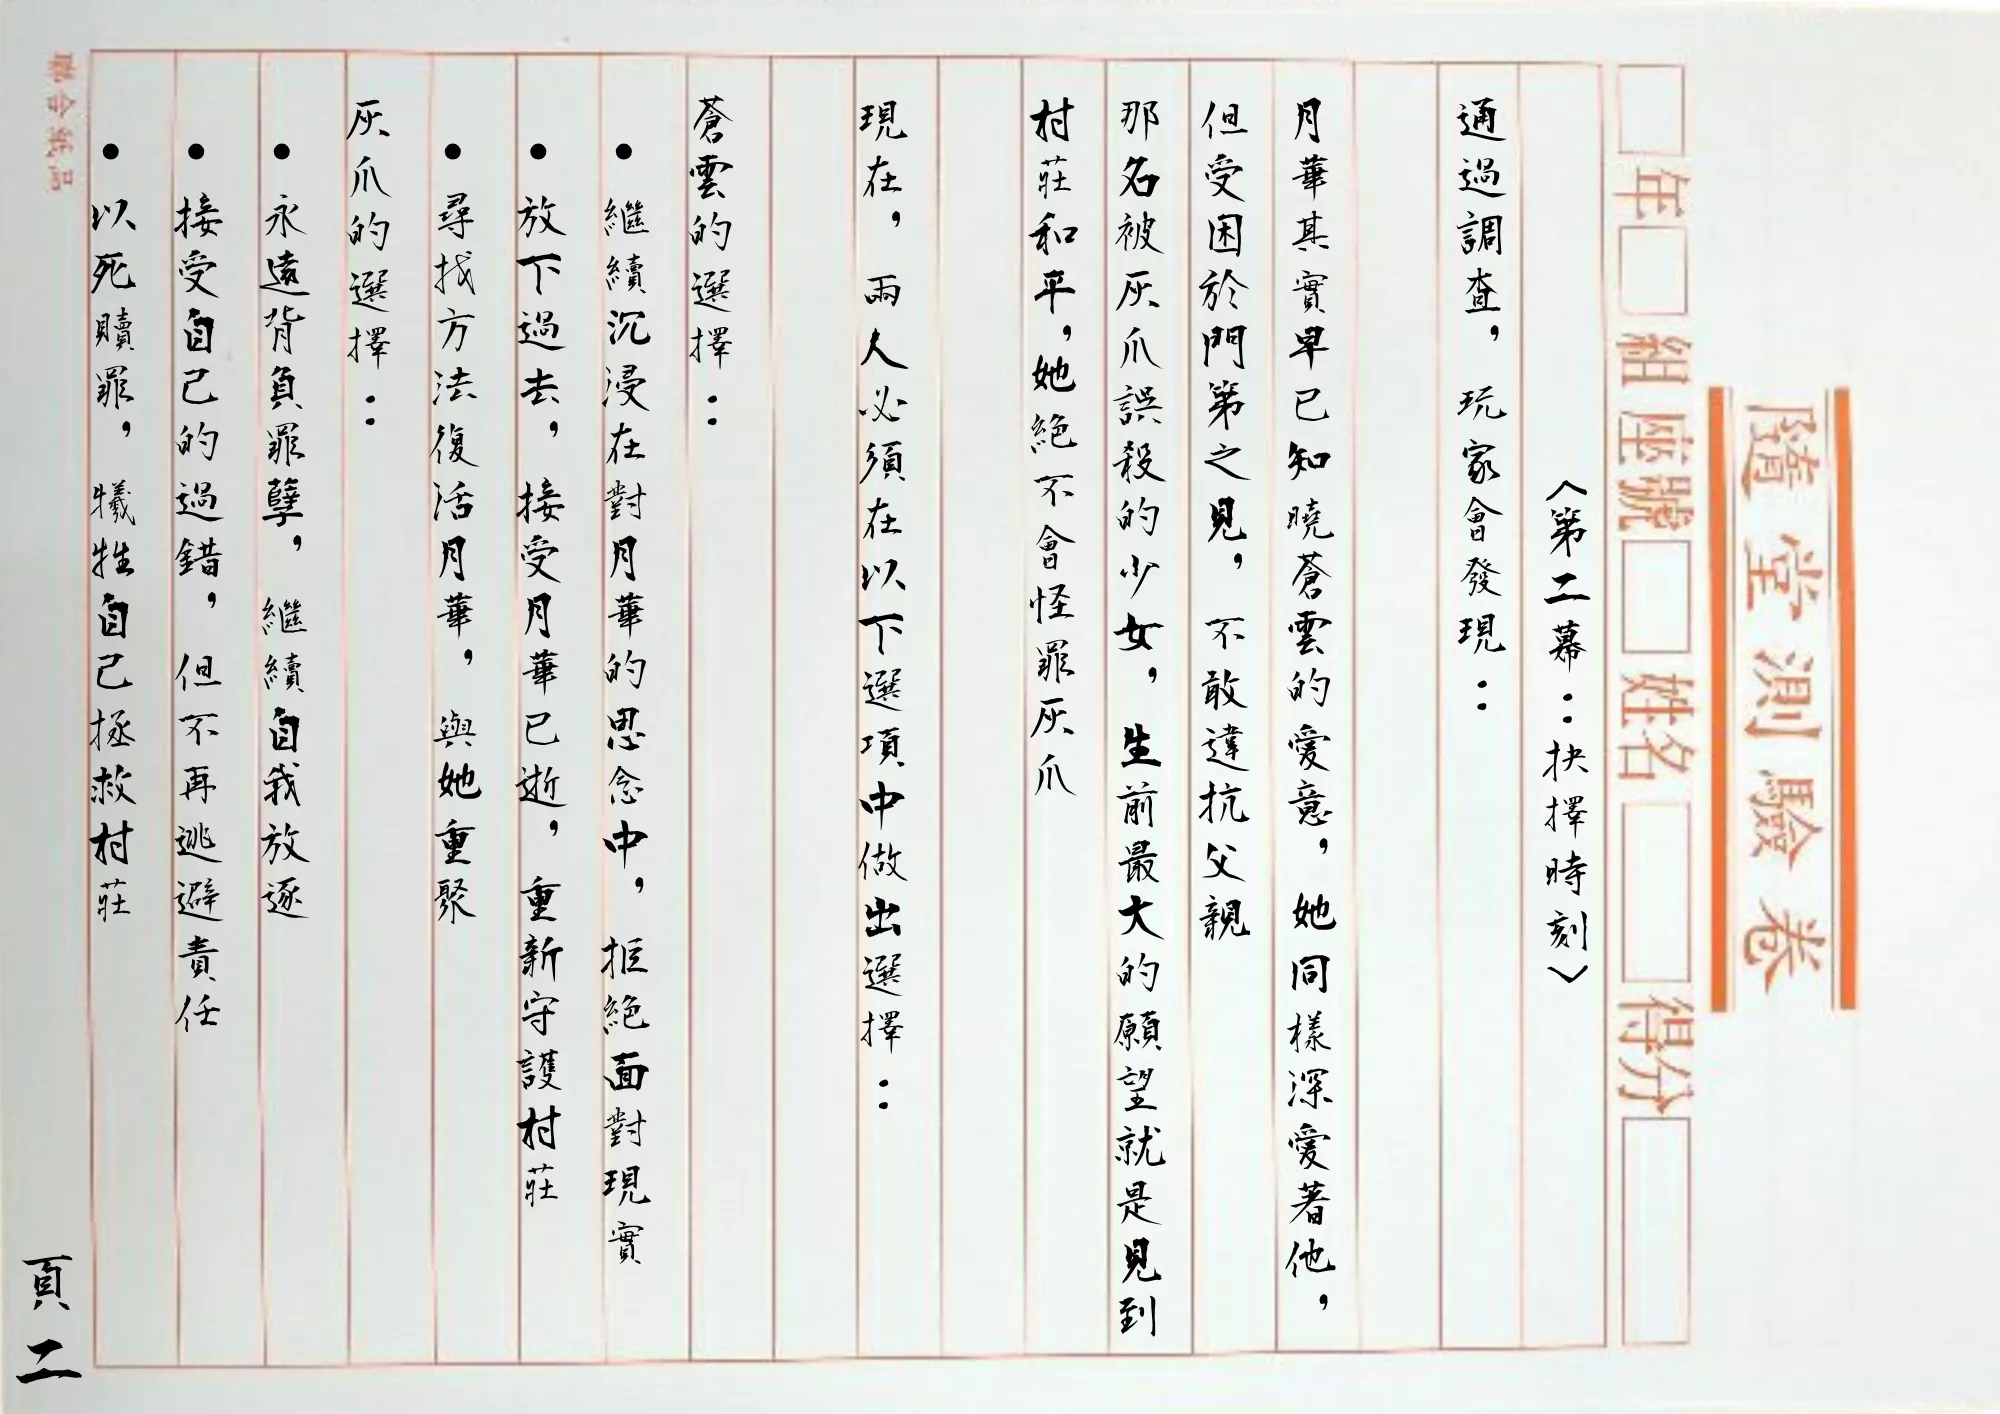 隨堂測驗卷
年 組 座號 姓名 得分
〈第二幕：抉擇時刻〉
通過調查，玩家會發現：
月華其實早已知曉蒼雲的愛意，她同樣深愛著他，
但受困於門第之見，不敢違抗父親
那名被灰爪誤殺的少女，生前最大的願望就是見到
村莊和平，她絕不會怪罪灰爪
現在，兩人必須在以下選項中做出選擇：
蒼雲的選擇：
• 繼續沉浸在對月華的思念中，拒絕面對現實
• 放下過去，接受月華已逝，重新守護村莊
• 尋找方法復活月華，與她重聚
灰爪的選擇：
• 永遠背負罪孽，繼續自我放逐
• 接受自己的過錯，但不再逃避責任
• 以死贖罪，犧牲自己拯救村莊
頁二